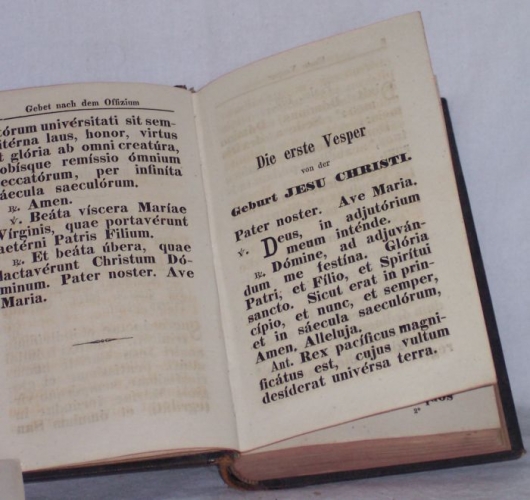 Gebet nach dem Offizium
tórum universitati sit sem-
itérna laus, honor, virtus
t glória ab omni creatúra,
obísque remíssio ómnium
eccatórum, per infiníta
áecula saeculórum.
℟. Amen.
℣. Beáta víscera Maríae
Vírginis, quae portavérunt
aetérni Patris Filium.
℟. Et beáta úbera, quae
lactavérunt Christum Dó-
minum. Pater noster. Ave
Maria.
Die erste Vesper
von der
Geburt JESU CHRISTI.
Pater noster. Ave Maria.
℣. Deus, in adjutórium
meum inténde.
℟. Dómine, ad adjuván-
dum me festína. Glória
Patri, et Fílio, et Spirítui
sancto. Sicut erat in prin-
cípio, et nunc, et semper,
et in sáecula saeculórum,
Amen, Alleluja.
Ant. Rex pacíficus magni-
ficátus est, cujus vultum
desíderat univérsa terra.